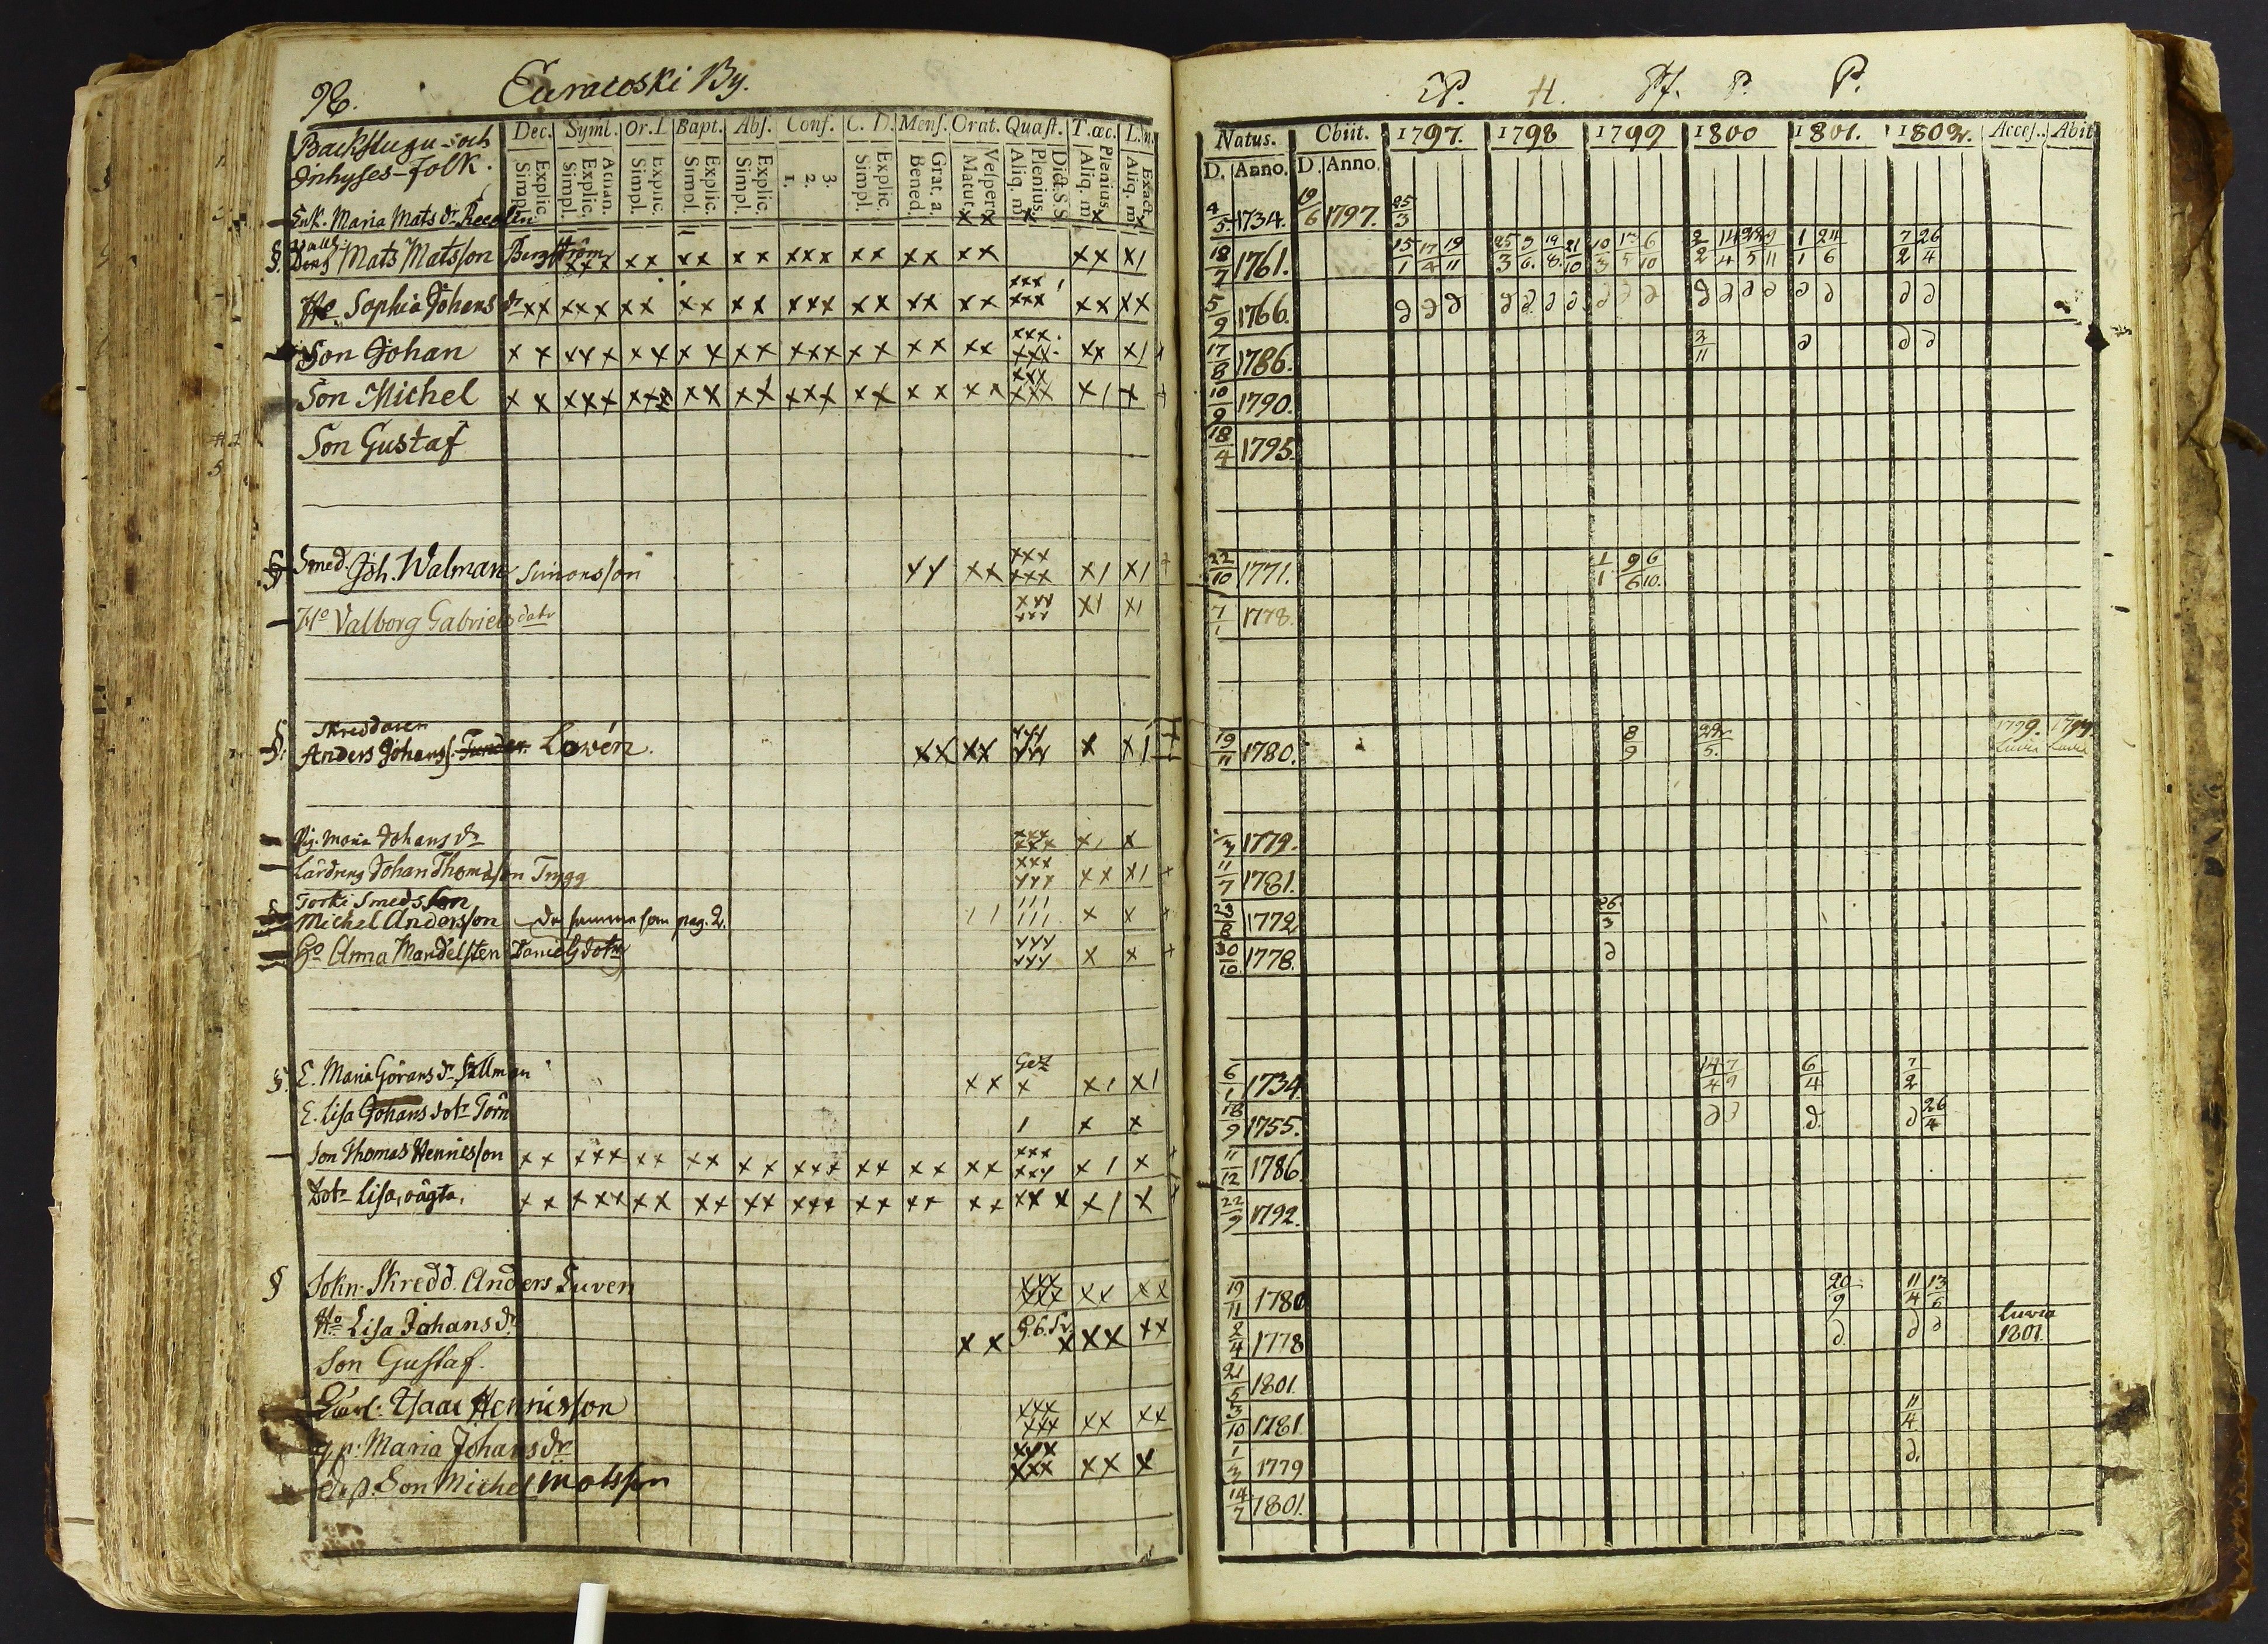 98. Euracoski By.
Backstugu- och
Inhyses-Folk.
Dec. Symb. Or. D. Bapt. Abs. Conf. C. D. Mens. Orat. Quæst. T. œc. L. n.
Explic. Simpl. Athan. Explic. Simpl. Explic. Simpl. Explic. Simpl. Explic. Simpl. 3. 2. 1. Explic. Simpl. Grat. a. Bened. Vesper. Matut. Dict. S. S. Plenius. Aliq. m. Plenius. Aliq. m. Exact. Aliq. m.
Enk. Maria Mats dr
§. Mats Matsson Bergström xxx xx xx xx xxx xx xx xx xx x1
Ho. Sophia Johans dr xx xxx xx xx xx xxx xx xx xx xxx xxx xx xx
Son Johan x x xxx xx xx xx xxx xx xx xx xxx xxx xx x1
Son Michel x x xxx xxx xx xx xxx xx xx xx xxx xxx x1 x
Son Gustaf
§ Smed. Joh. Walman Simonsson xx xx xxx xxx x1 x1
Ho Valborg Gabriels dotr xxx xxx x1 x1
Skreddaren
§. Anders Johanss. Lovén. xx xx xxx xxx x x1
Pig. Maria Johans dr xxx xxx x1 x
Lärdreng Johan Thomasson Trygg xxx xxx xx x1
Torki Smeds Son
Michel Andersson de samma som pag. 2. 11 111 111 x x
Ho Anna Mandelsten Daniels dotr xxx xxx x x
§. E. Maria Görans dr Sallman xx x x1 x1
E. Lisa Johans dotr Törn 1 x x
Son Thomas Hennisson xx xxx xx xx xx xxx xx xx xx xxx xxx x1 x
Dotr Lisa, oägta, xx xxx xx xx xx xxx xx xx xx xxx x1 x
§ Sokn. Skredd. Anders Luven xxx xxx xx xx
Ho Lisa Johans dr xx x xx xx
Son Gustaf.
Isaac Hennisson xxx xxx xx xx
Maria Johans dr xxx xxx xx x
Son Michel Matsson
P. H. P. P.
Natus. Obiit. 1797. 1798 1799 1800 1801. 1802. Acces. Abit
D. Anno. D. Anno.
4/5 1734. 19/6 1797. 25/3
18/7 1761. 15/1 17/4 19/11 25/3 3/6. 19/8. 21/10 10/3 13/5 6/10 2/2 14/4 22/5 9/11 1/1 24/6 7/2 26/4
5/9 1766. ∂ ∂ ∂ ∂ ∂ ∂ ∂ ∂ ∂ ∂ ∂ ∂ ∂ ∂ ∂ ∂ ∂ ∂
17/8 1786. 2/11 ∂ ∂ ∂
10/9 1790.
18/4 1795.
22/10 1771. 1/1 9/6 6/10.
7/1 1778.
19/11 1780. 8/9 22/5. 1799. Luvia 1799. Luvia
1/3 1779.
11/7 1781.
23/8 1772 26/3
30/10 1778. ∂
6/1 1734. 14/4 7/9 6/4 7/2
18/9 1755. ∂ ∂ ∂. ∂ 26/4
11/12 1786.
22/9 1792.
19/11 1780 20/9 11/4 13/6
2/4 1778 ∂. ∂ ∂ Luvia 1801.
21/5 1801.
3/10 1781. 11/4
1/3 1779 ∂.
14/7 1801.